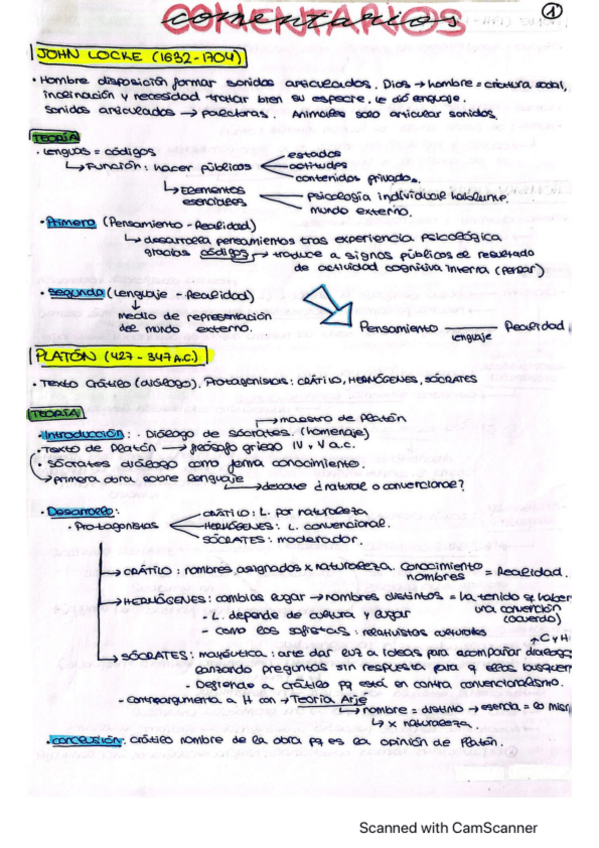 COMENTARIOS
comentarios
①
JOHN LOCKE (1632-1704)
· Hombre disposición formar sonidos articulados. Dios → hombre = criatura social,
inclinación y necesidad tratar bien su especie, le dió lenguaje.
Sonidos articulados → palabras. Animales solo articular sonidos.
TEORÍA
· Lenguas = códigos
↳ Función: hacer públicos
estados
actitudes
contenidos privados.
↳ Elementos esenciales
psicología individual hablante.
mundo externo.
· Primera (Pensamiento - Realidad)
↳ desarrolla pensamientos tras experiencia psicológica
gracias códigos → traduce a signos públicos el resultado
de actividad cognitiva interna (pensar)
· Segunda (Lenguaje - Realidad)
↓
medio de representación
del mundo externo.
Pensamiento lenguaje Realidad
PLATÓN (427 - 347 A.C.)
· Texto Crátilo (diálogo). Protagonistas: CRÁTILO, HERMÓGENES, SÓCRATES
TEORÍA
→ maestro de Platón
· Introducción: · Diálogo de Sócrates. (homenaje)
· Texto de Platón → filósofo griego IV y V a.c.
· Sócrates diálogo como forma conocimiento.
→ primera obra sobre lenguaje
↳ debate ¿natural o convencional?
· Desarrollo:
· Protagonistas
CRÁTILO: L. por naturaleza
HERMÓGENES: L. convencional.
SÓCRATES: moderador.
→ CRÁTILO: nombres asignados x naturaleza. Conocimiento nombres = Realidad.
→ HERMÓGENES: cambias lugar → nombres distintos = ha tenido q haber
una convención
(acuerdo)
- L. depende de cultura y lugar
- como los sofistas: relativistas culturales
↑ C y H
→ SÓCRATES: mayéutica: arte dar luz a ideas para acompañar
lanzando preguntas sin respuesta para q ellos busquen
- Defiende a Crátilo pq está en contra convencionalismo.
- Contraargumenta a H con → Teoría Arjé
↳ nombre = distinto → esencia = lo
↳ x naturaleza.
· Conclusión: Crátilo nombre de la obra pq es la opinión de Platón.
Scanned with CamScanner